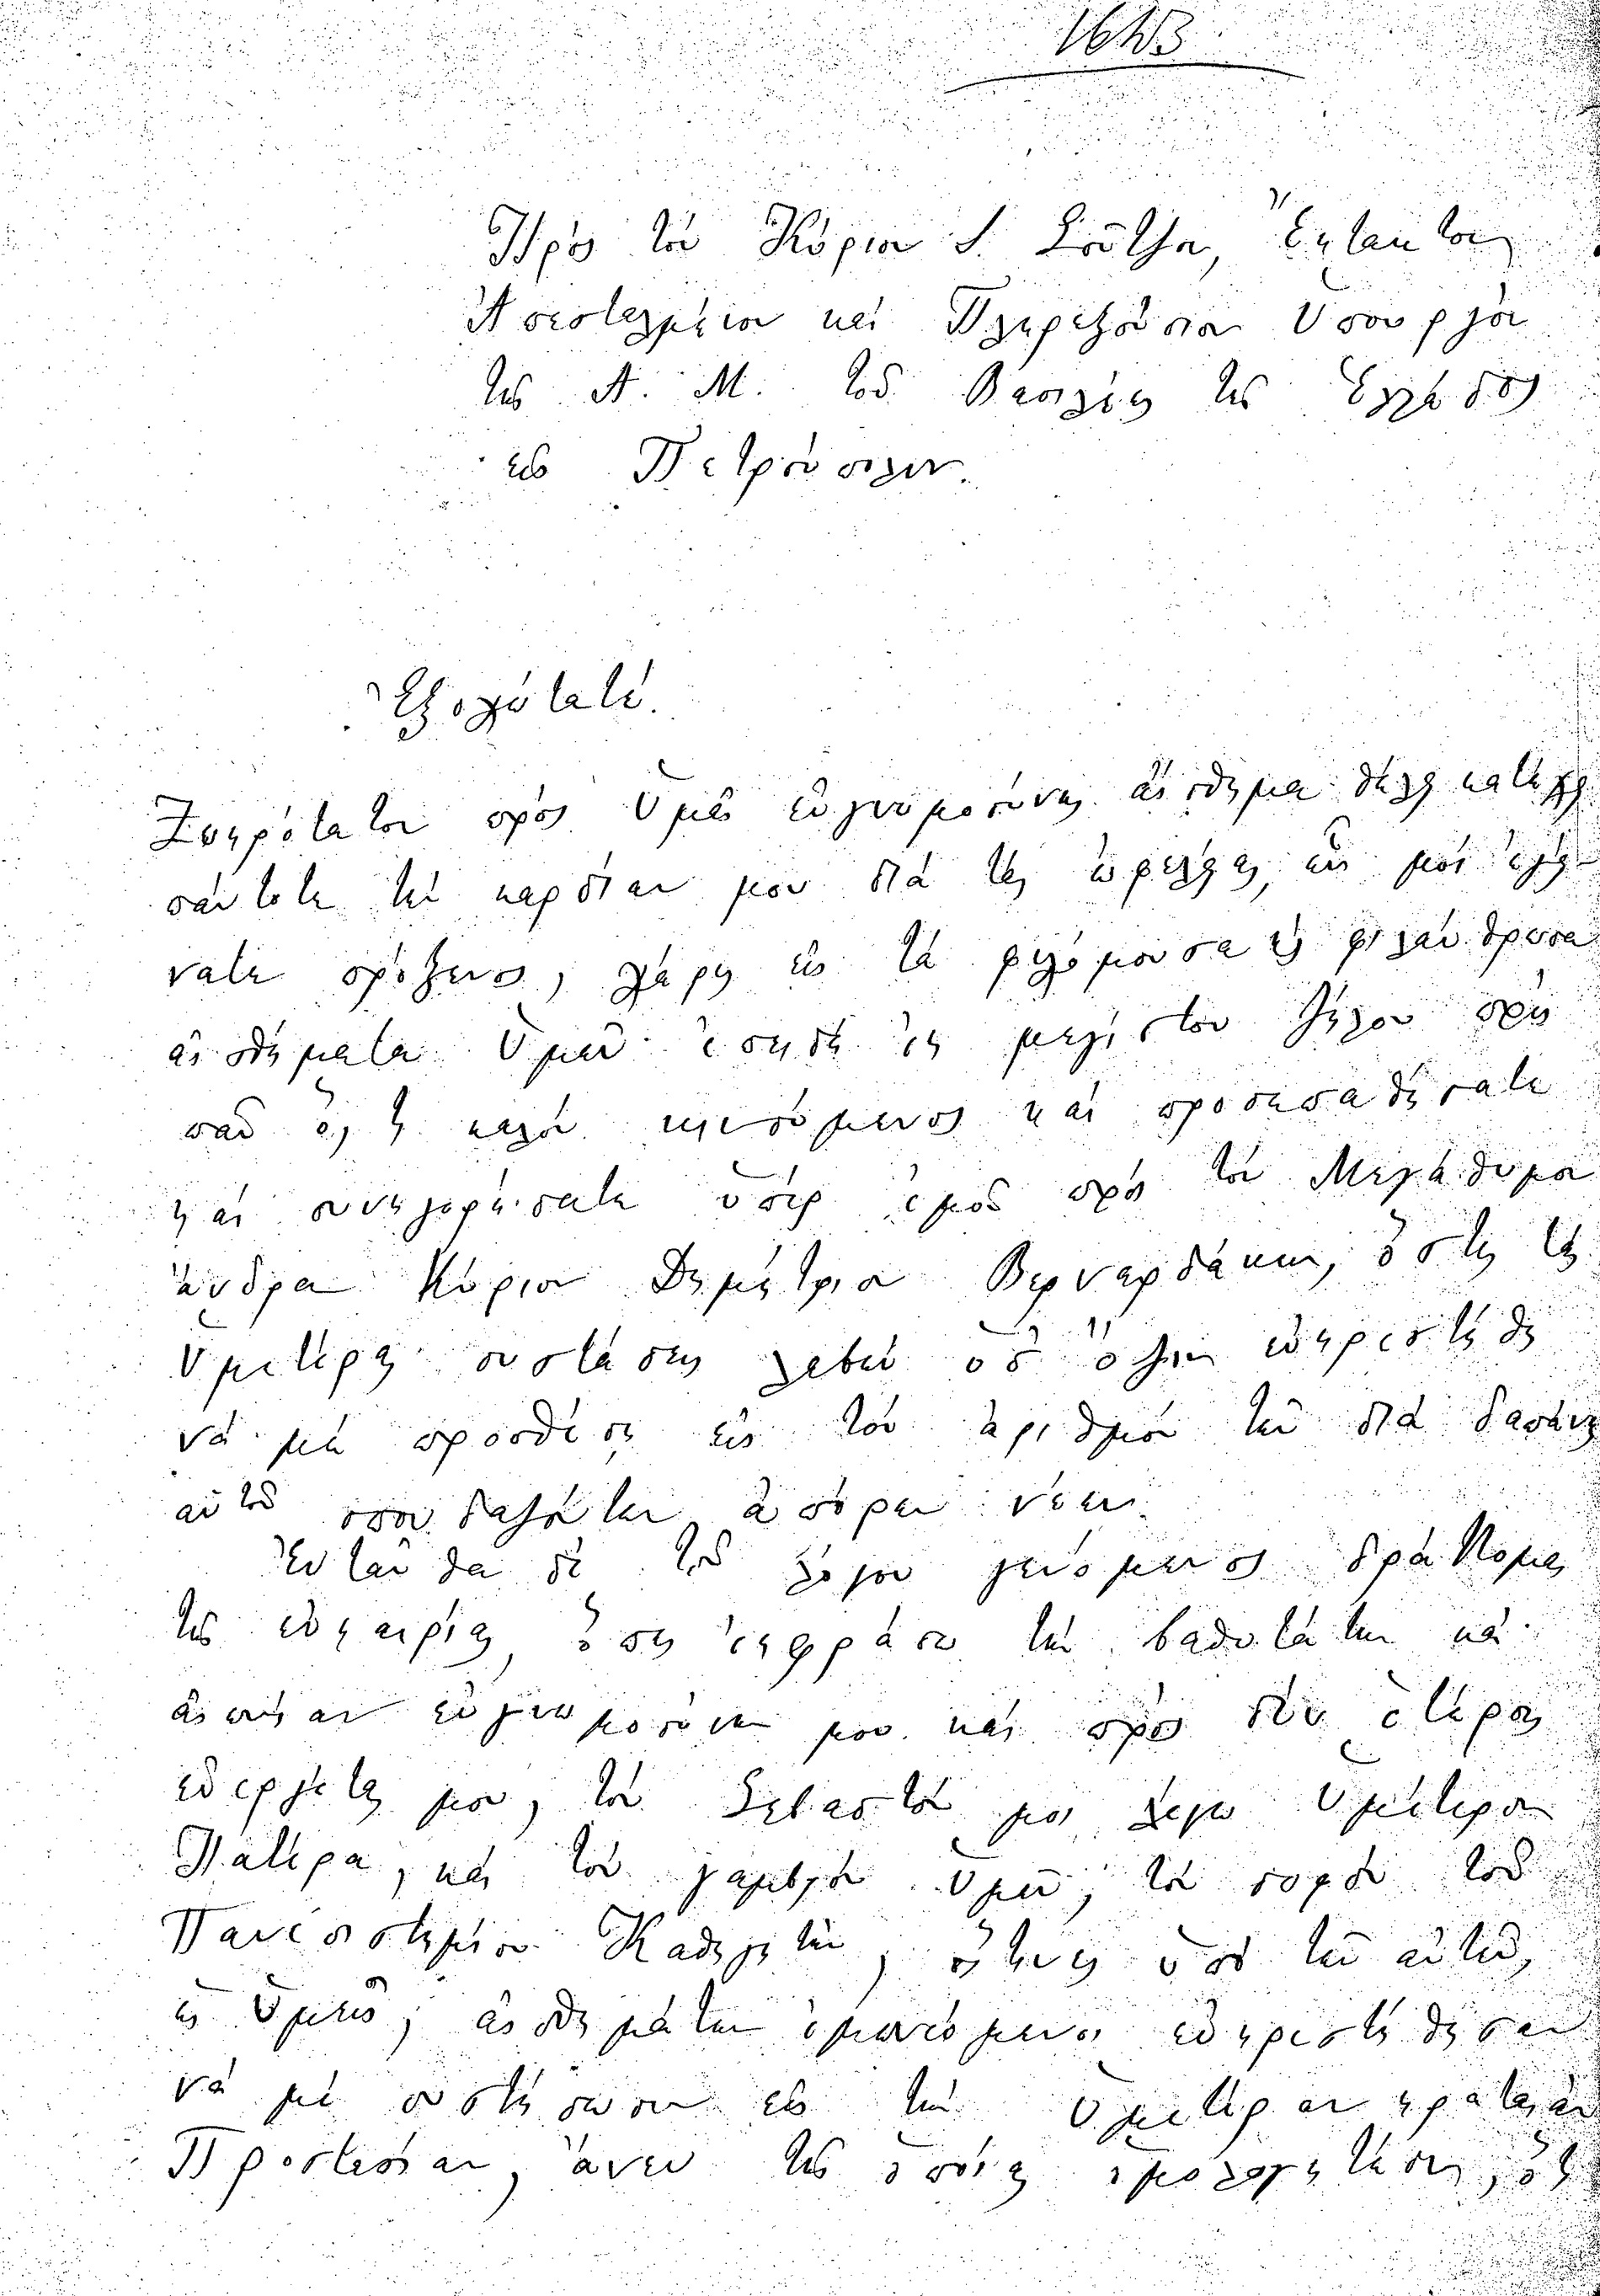 Πρὸς τὸν Κύριον Σ. Σοῦτσον, Ἔκτακτον
Ἀπεσταλμένον καὶ Πληρεξούσιον Ὑπουργὸν
τῆς Α. Μ. τοῦ Βασιλέως τῆς Ἑλλάδος
εἰς Πετρούπολιν.
Ἐξοχώτατε.
Ζωηρότατον πρὸς Ὑμᾶς εὐγνωμοσύνης αἴσθημα θέλει κατέχει
πάντοτε τὴν καρδίαν μου διὰ τὰς ὠφελείας, ἃς μοὶ
νατε προξένως, χάρις εἰς τὰ φιλόμουσα καὶ φιλάνθρωπα
αἰσθήματα Ὑμῶν· ἐπειδὴ ἐκ μεγίστου ζήλου πρὸς
πᾶν ὅ,τι καλὸν κινούμενος καὶ προσεπαθήσατε
καὶ συνηγορήσατε ὑπὲρ ἐμοῦ πρὸς τὸν Μεγάθυμον
ἄνδρα Κύριον Δημήτριον Βερναρδάκην, ὅστις τὰς
Ὑμετέρας συστάσεις λαβὼν ὑπ' ὄψιν εὐηρεστήθη
νὰ μὲ προσθέσῃ εἰς τὸν ἀριθμὸν τῶν διὰ δαπάνης
αὐτοῦ σπουδαζόντων ἀπόρων νέων.
Ἐνταῦθα δὲ τοῦ λόγου γενόμενος δράττομαι
τῆς εὐκαιρίας, ὅπως ἐκφράσω τὴν βαθυτάτην καὶ
ἀΐδιον εὐγνωμοσύνην μου καὶ πρὸς δύο ἑτέρους
εὐεργέτας μου, τὸν Σεβαστόν μοι λέγω Ὑμέτερον
Πατέρα, καὶ τὸν γαμβρὸν Ὑμῶν, τὸν σοφὸν τοῦ
Πανεπιστημίου Καθηγητήν, οἵτινες ὑπὸ τῶν αὐτῶν,
ὡς Ὑμεῖς, αἰσθημάτων ἐμπνεόμενοι εὐηρεστήθησαν
νὰ μὲ συστήσωσιν εἰς τὴν Ὑμετέραν κραταιὰν
Προστασίαν, ἄνευ τῆς ὁποίας ὁμολογητέον, ὅτι